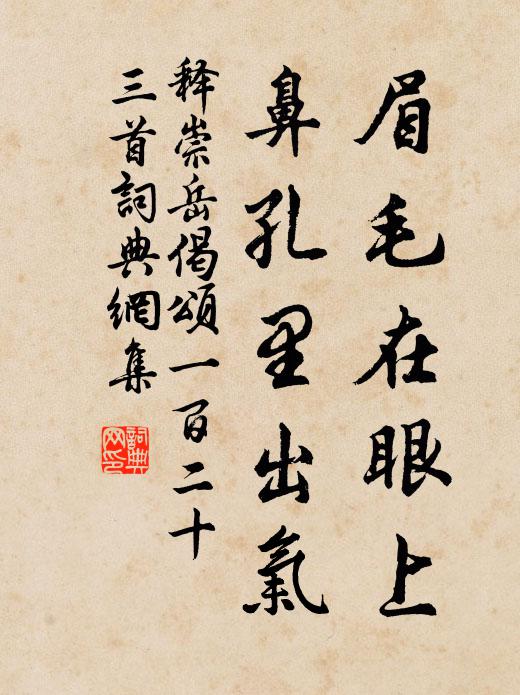 眉毛在眼上
鼻孔里出氣
释崇岳偈頌一百二十
三首詞典網集
詞典
网印